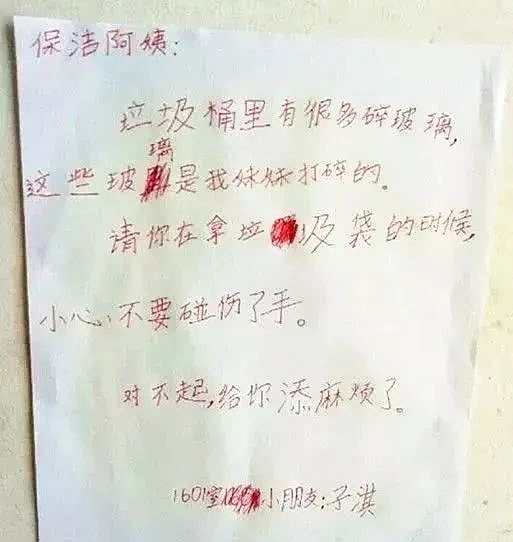 保洁阿姨:
垃圾桶里有很多碎玻璃,
这些玻璃是我妹妹打碎的。
请你在拿垃圾袋的时候,
小心,不要碰伤了手。
对不起,给你添麻烦了。
1601室小朋友:子淇